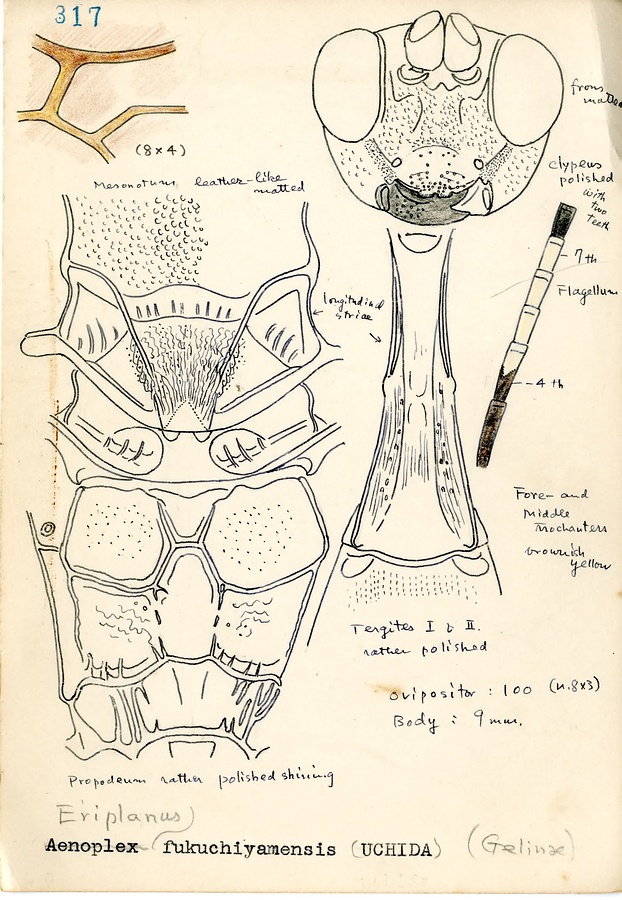 317
(8×4)
Mesonotum leather-like
matted
frons
matted
clypeus
polished
with
two
teeth
7th
Flagellum
4th
longitudinal
striae
Fore- and
Middle
Trochanters
brownish
yellow
Tergites I & II.
rather polished
ovipositor : 100 (n.8×3)
Body : 9 mm.
Propodeum rather polished shining
Eriplanus)
Aenoplex fukuchiyamensis (UCHIDA) (Gelinae)